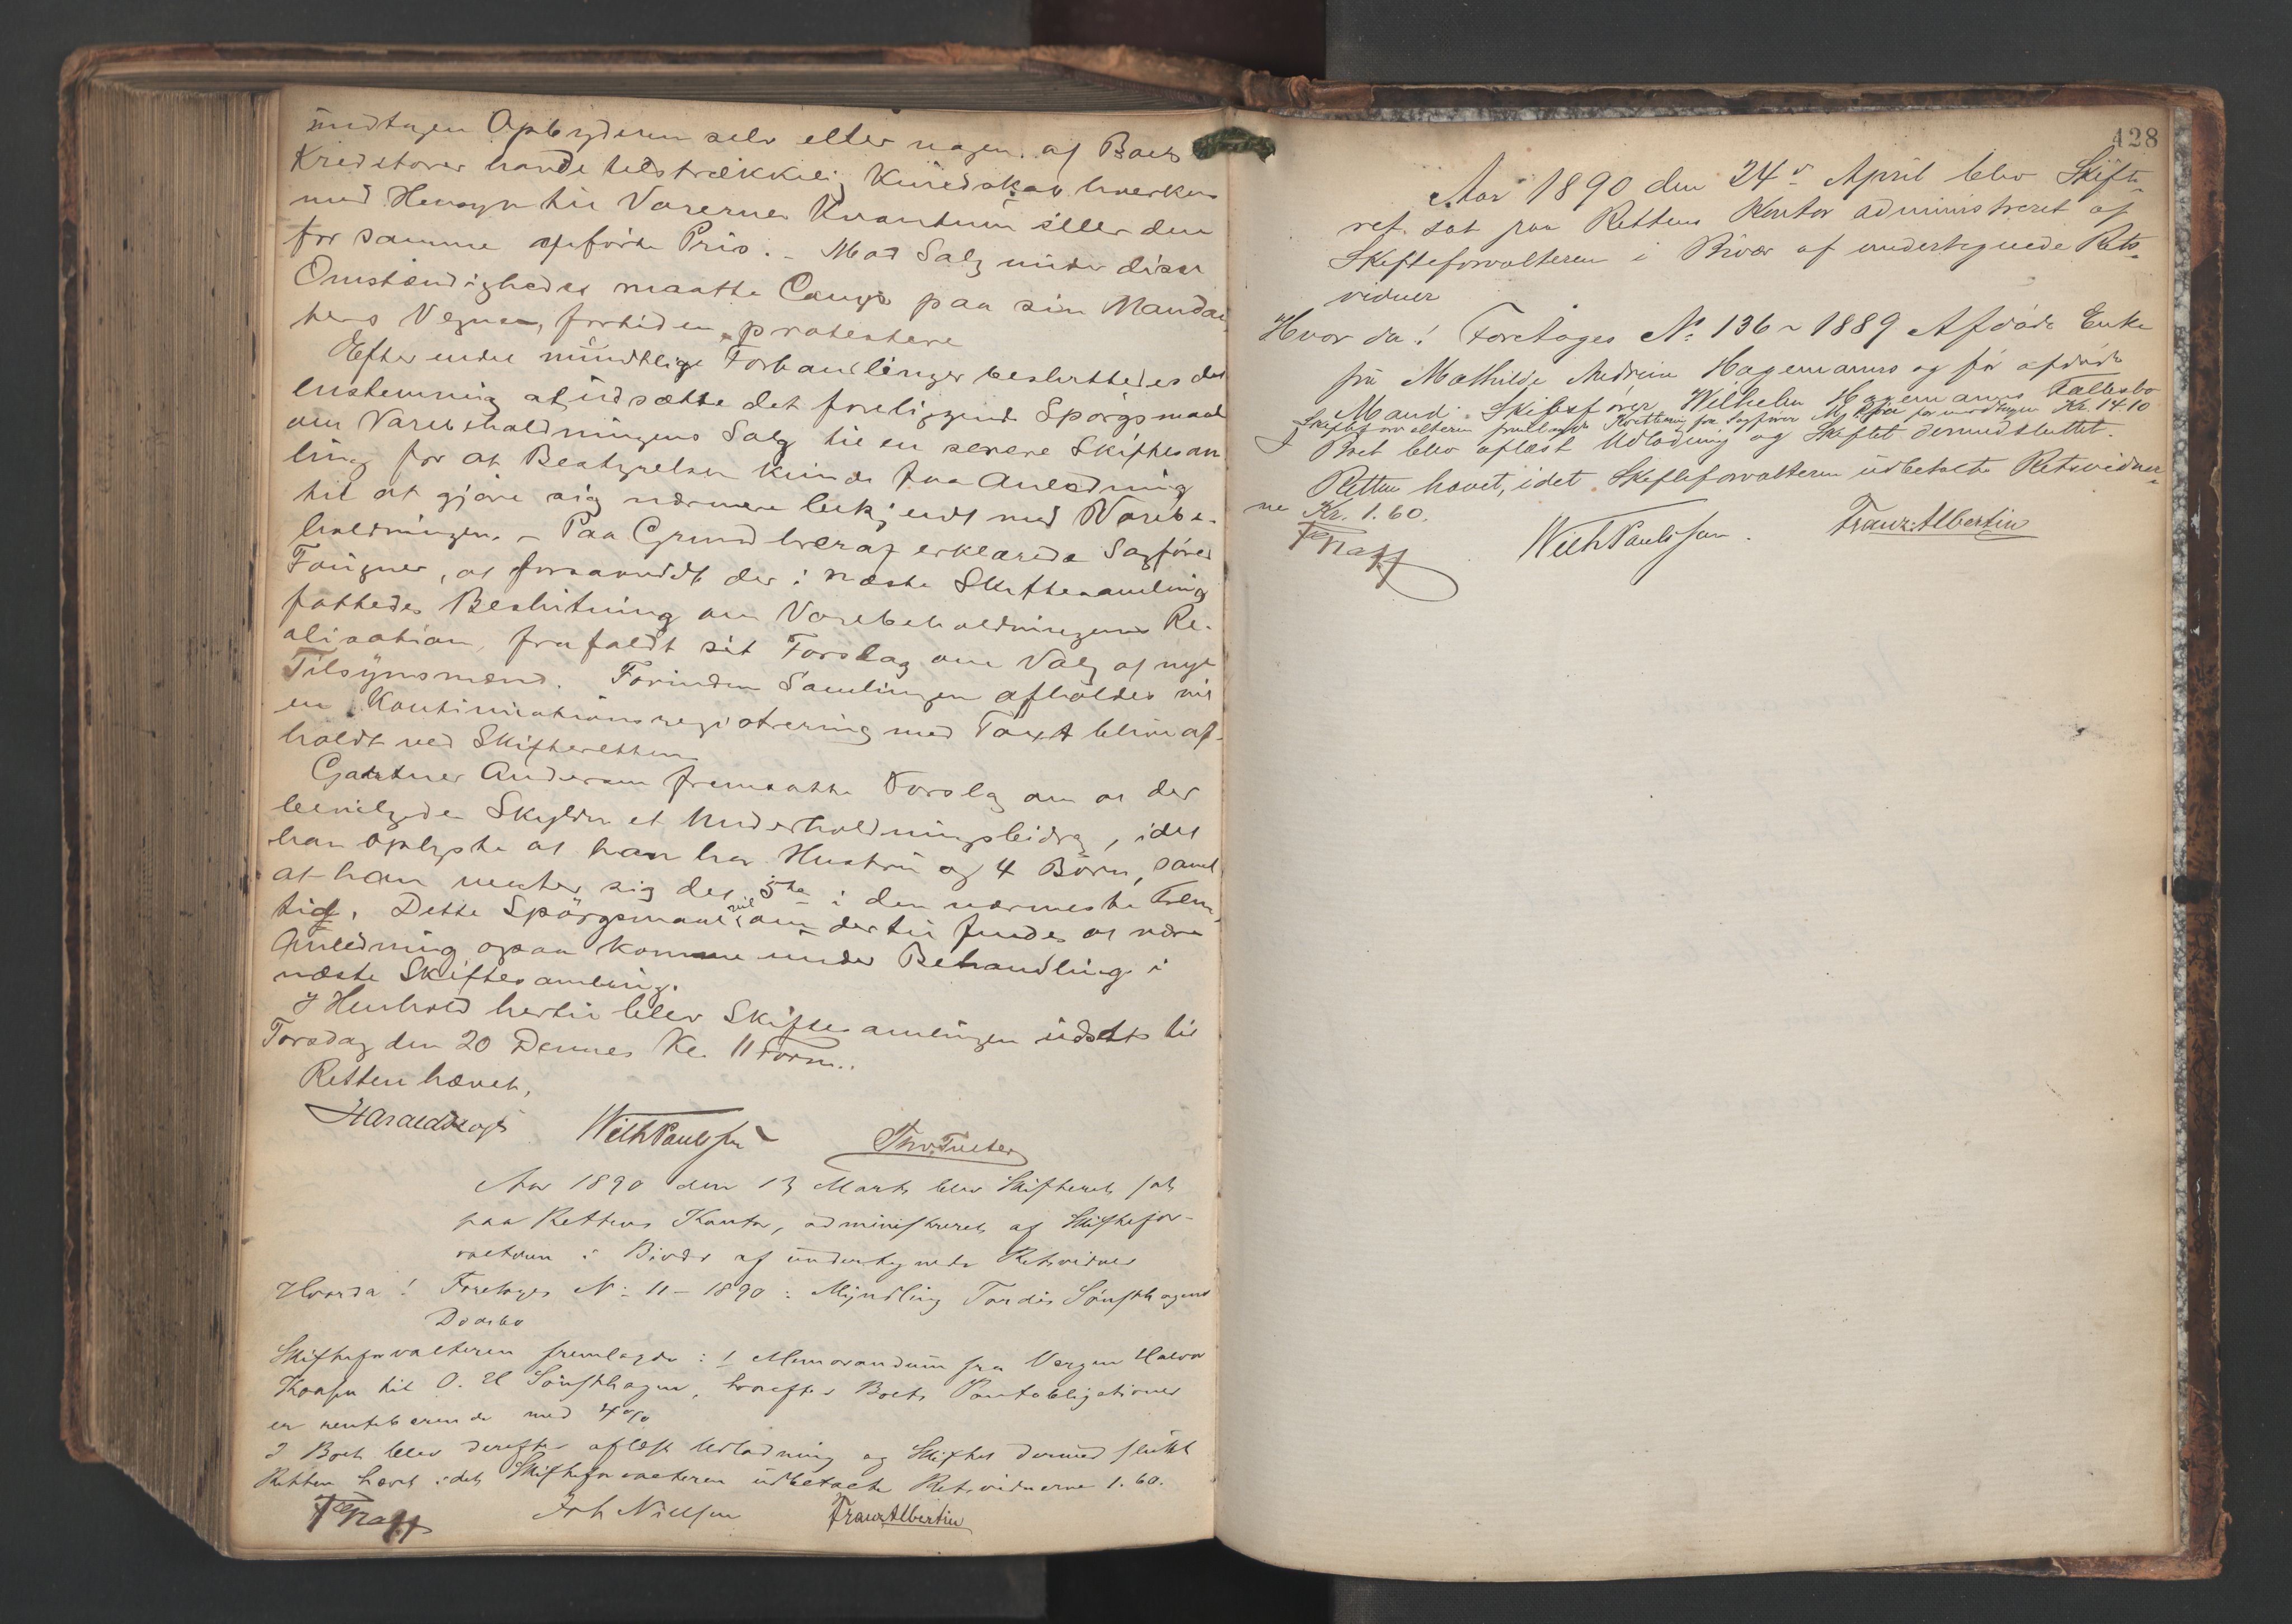 undtagen Opbyderen selv eller nogen af Boets
Kreditorer havde tilstrækkelig Kundskab hverken
med Hensyn til Varernes Kvantum eller den
for samme opførte Pris. - Mod Salg under disse
Omstændigheder maatte Comp. paa sin Mandan
hers Vegne, fortiden protestere
Efter endel mundtlige Forhandlinger besluttedes det
enstemmig at udsætte det foreliggende Spørgsmaal
om Varebeholdningens Salg til en senere Skiftesam
ling for at Bestyrelsen kunde faa Anledning
til at gjøre sig nærmere bekjendt med Varebe-
holdningen. - Paa Grund heraf erklærede Sagfører
Fougner, at forsaavidt der i næste Skiftesamling
fattedes Beslutning om Varebeholdningens Re-
alisation, frafaldt sit Forslag om Valg af nye
Tilsynsmænd. Forinden Samlingen afholdes vil
en Kontinuationsregistrering med Taxt blive af-
holdt ved Skifteretten
Gartner Andersen fremsatte Forslag om at der
bevilgedes Skyldn. et Underholdningsbidrag, idet
han oplyste at han har Hustru og 4 Børn, samt
at han venter sig det 5te i den nærmeste Frem-
tid. Dette Spørgsmaal vil, om der til findes at være
Anledning ogsaa komme under Behandling i
næste Skiftesamling.
I Henhold hertil blev Skiftesamlingen udsat til
Torsdag den 20 Dennes Kl. 11 Form..
Retten hævet,
Harald
Wilh Paulssen
Aar 1890 den 13 Marts blev Skifteret sat
paa Rettens Kontor, administreret af Skiftefor-
valteren i Bivær af undertegnede Retsvidner
Hvorda! Foretoges No 11 - 1890: Myndling Tordis Sønsthagens
Dødsbo
Skifteforvalteren fremlagde: 1 Memorandum fra Vergen Halvor
til O. H Sønsthagen, hvorefter Boets Pantobligationer
er rentebærende med 4%
I Boet blev derefter aflæst Udlodning og Skiftet dermed sluttet
Retten hævet idet Skifteforvalteren udbetalte Retsvidnerne 1.60.
Joh Nielsen
Franz Albertin
428
Aar 1890 den 24de April blev Skifte-
ret sat paa Rettens Kontor administreret af
Skifteforvalteren i Bivær af undertegnede Rets-
vidner
Hvor da! Foretoges No 136 - 1889 Afdøde Enke
fru Mathilde Hagemanns og før afdøde
Mand Skibsfører Wilhelm Hagemanns Fællesbo
Skifteforvalteren fremlagde Kvittering fra Sagfører for modtagne Kr. 14.10
I Boet blev oplæst Udlodning og Skiftet dermed sluttet.
Retten hævet, idet Skifteforvalteren udbetalte Retsvidner-
ne Kr. 1.60.
Wilh Paulssen.
Franz Albertin